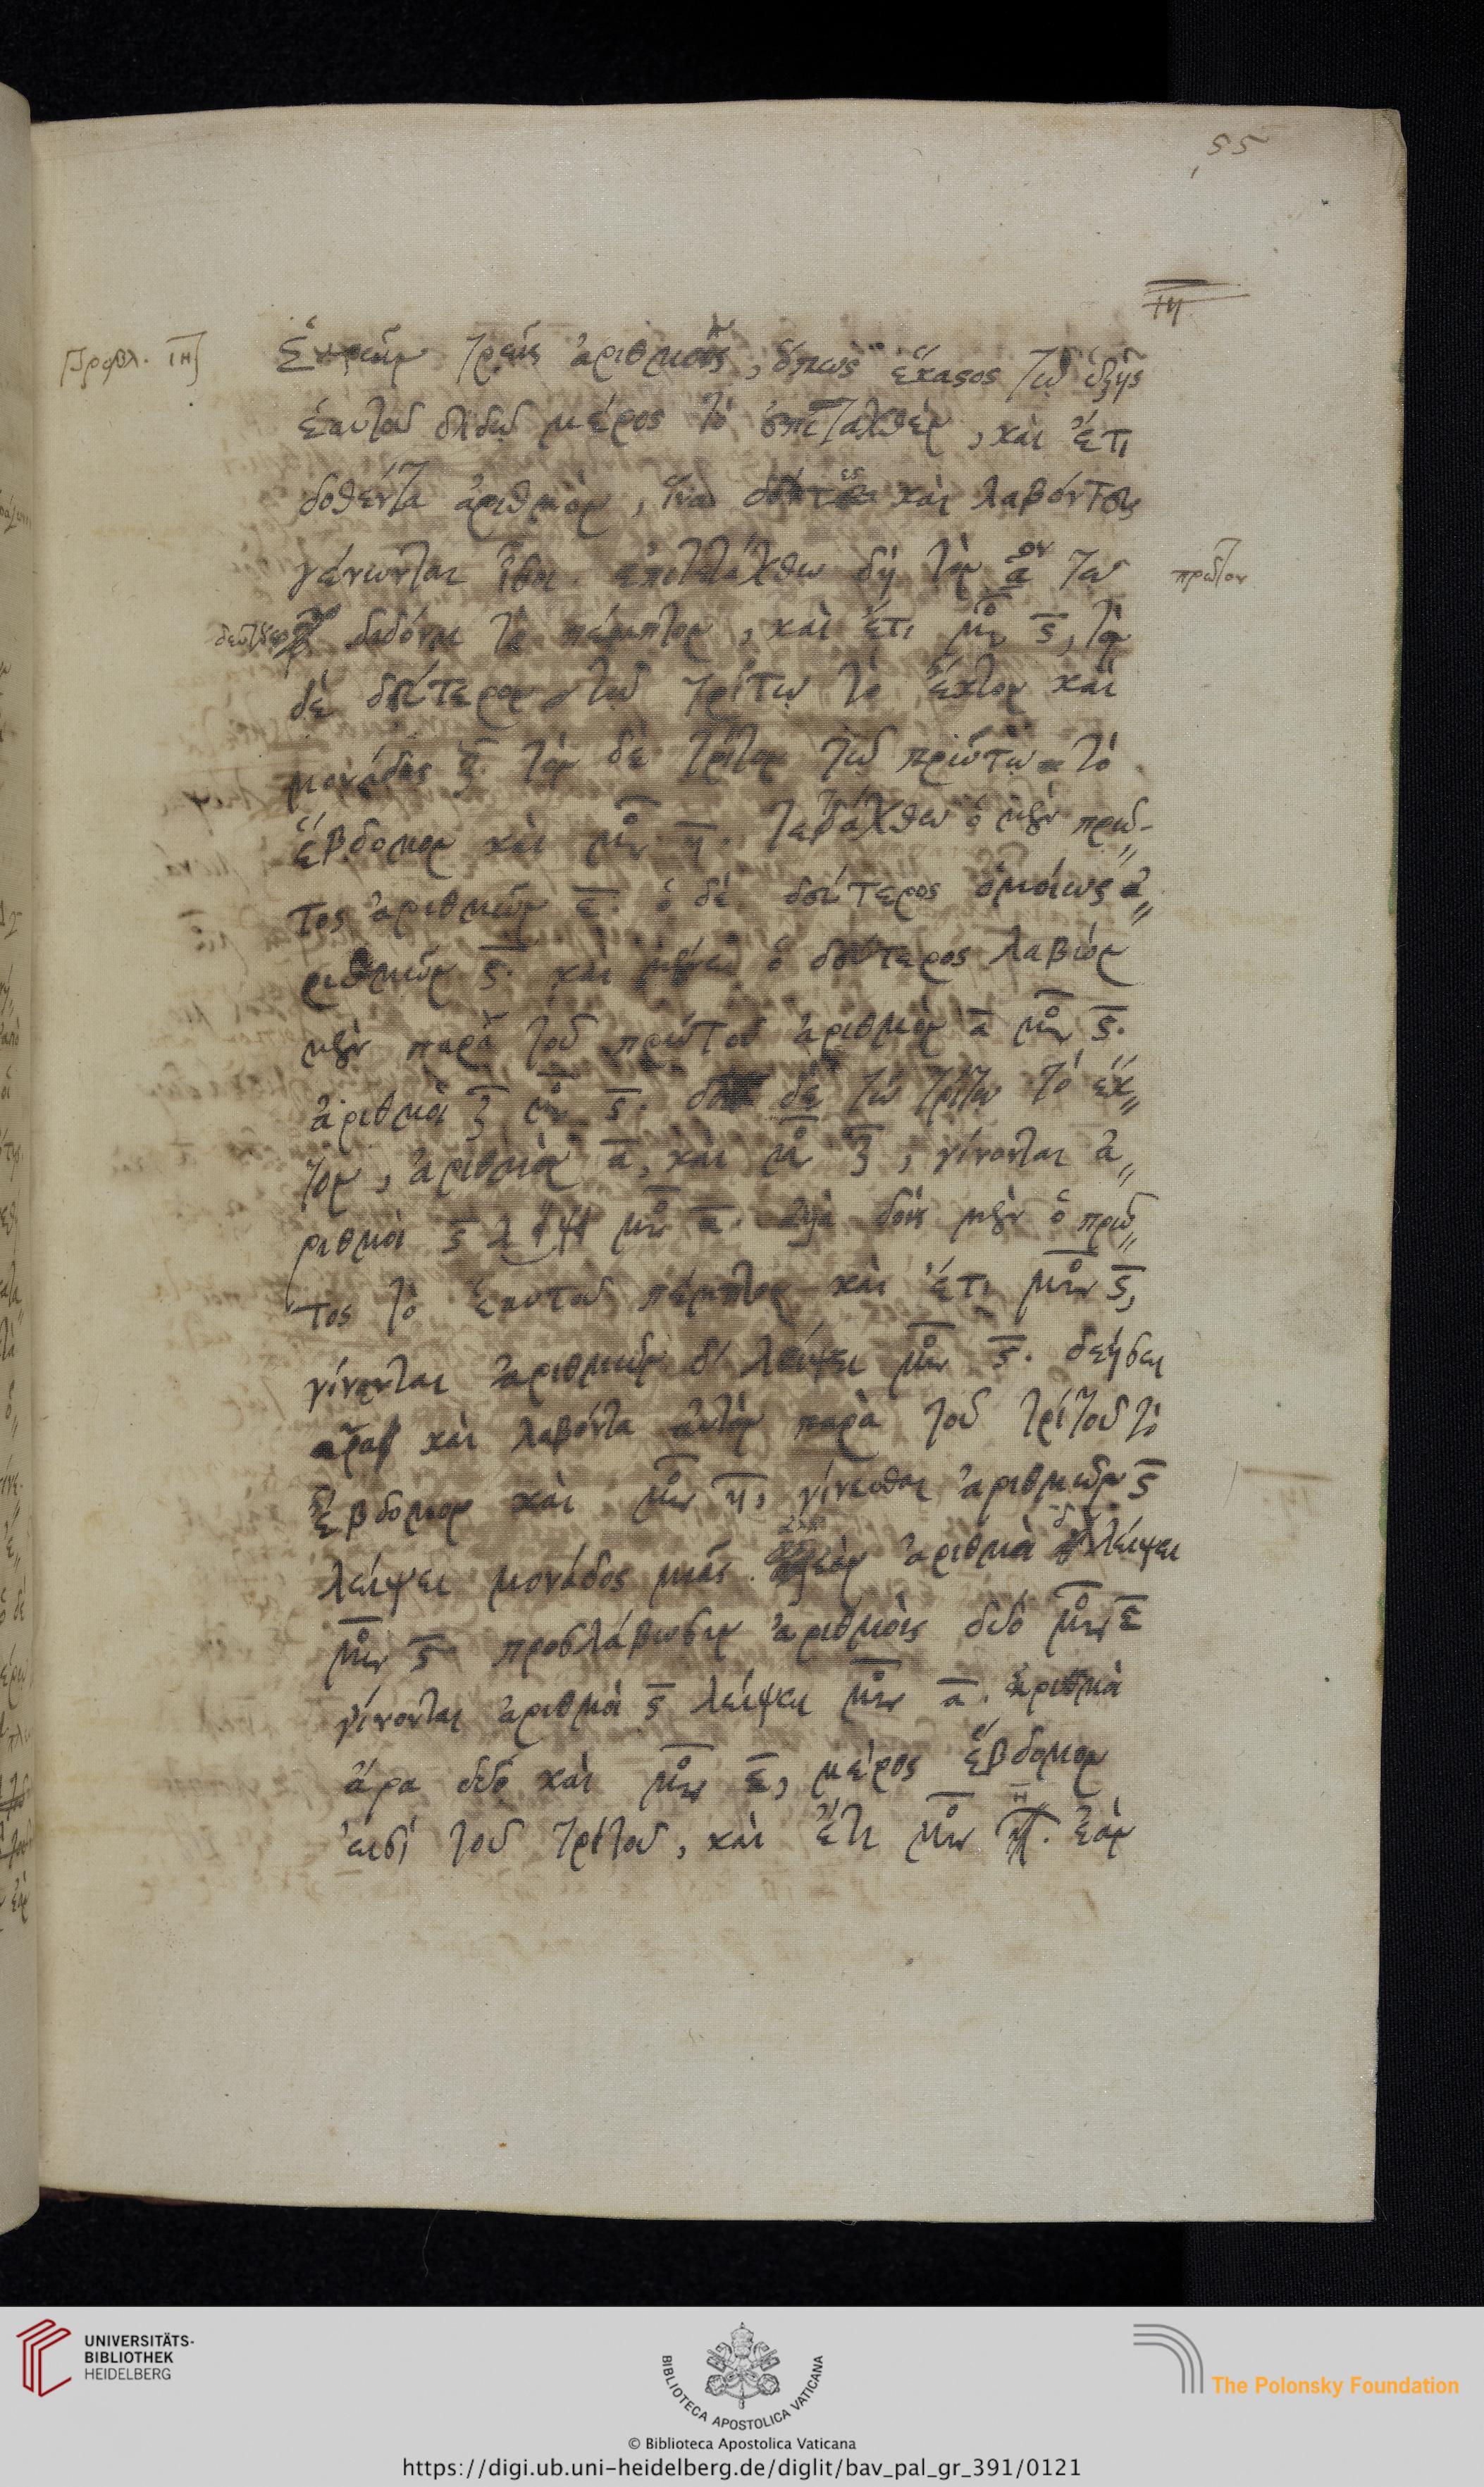 55
ιη
Προβλ. ΙΗ
Εὑρεῖν τρεῖς ἀριθμοὺς, ὅπως ἕκαστος τῷ ἑξῆς
ἑαυτοῦ διδῷ μέρος τὸ ἐπιταχθὲν, καὶ ἔτι
δοθέντα ἀριθμὸν, ἵνα δόντες καὶ λαβόντες
γένωνται ἴσοι. ἐπιτετάχθω δὴ τὸν α̅ον τῷ
πρῶτον
δεύτερον
διδόναι τὸ πέμπτον, καὶ ἔτι μο ϛ̅, τὸν
δὲ δεύτερον τῷ τρίτῳ τὸ ἕκτον καὶ
μονάδας ζ̅. τὸν δὲ τρίτον τῷ πρώτῳ τὸ
ἕβδομον καὶ μο η̅. τετάχθω ὁ μὲν πρῶ-
τος ἀριθμῶν ε̅. ὁ δὲ δεύτερος ὁμοίως ἀ〃
ριθμῶν ϛ̅. καὶ μένει ὁ δεύτερος λαβὼν
μὲν παρὰ τοῦ πρώτου ἀριθμὸν α̅ μο ϛ̅.
ἀριθμοὶ ζ̅ μο ϛ̅. δοὺς δὲ τῷ τρίτῳ τὸ ἕκ〃
τον, ἀριθμὸν α̅, καὶ μο ζ̅, γίνονται ἀ〃
ριθμοὶ ϛ̅ μο α̅. ἀλλὰ δοὺς μὲν ὁ πρῶ〃
τος τὸ ἑαυτοῦ πέμπτον καὶ ἔτι μο ϛ̅,
γίνονται ἀριθμῶν δ' λείψει μο ϛ̅. δεήσει
ἄρα καὶ λαβόντα αὐτὸν παρὰ τοῦ τρίτου τὸ
ἕβδομον καὶ μο η̅, γίνεσθαι ἀριθμῶν ϛ̅
λείψει μονάδος μιᾶς. ἐὰν ἀριθμοὶ δ λείψει
μο ϛ̅ προσλάβωσιν ἀριθμοὺς δύο μο ε̅
γίνονται ἀριθμοὶ ϛ̅ λείψει μο α̅. ἀριθμοὶ
ἄρα δύο καὶ μο ε̅, μέρος ἕβδομον
εἰσὶ τοῦ τρίτου, καὶ ἔτι μο η̅. ἐὰν
UNIVERSITÄTS-
BIBLIOTHEK
HEIDELBERG
BIBLIOTECA APOSTOLICA VATICANA
The Polonsky Foundation
© Biblioteca Apostolica Vaticana
https://digi.ub.uni-heidelberg.de/diglit/bav_pal_gr_391/0121